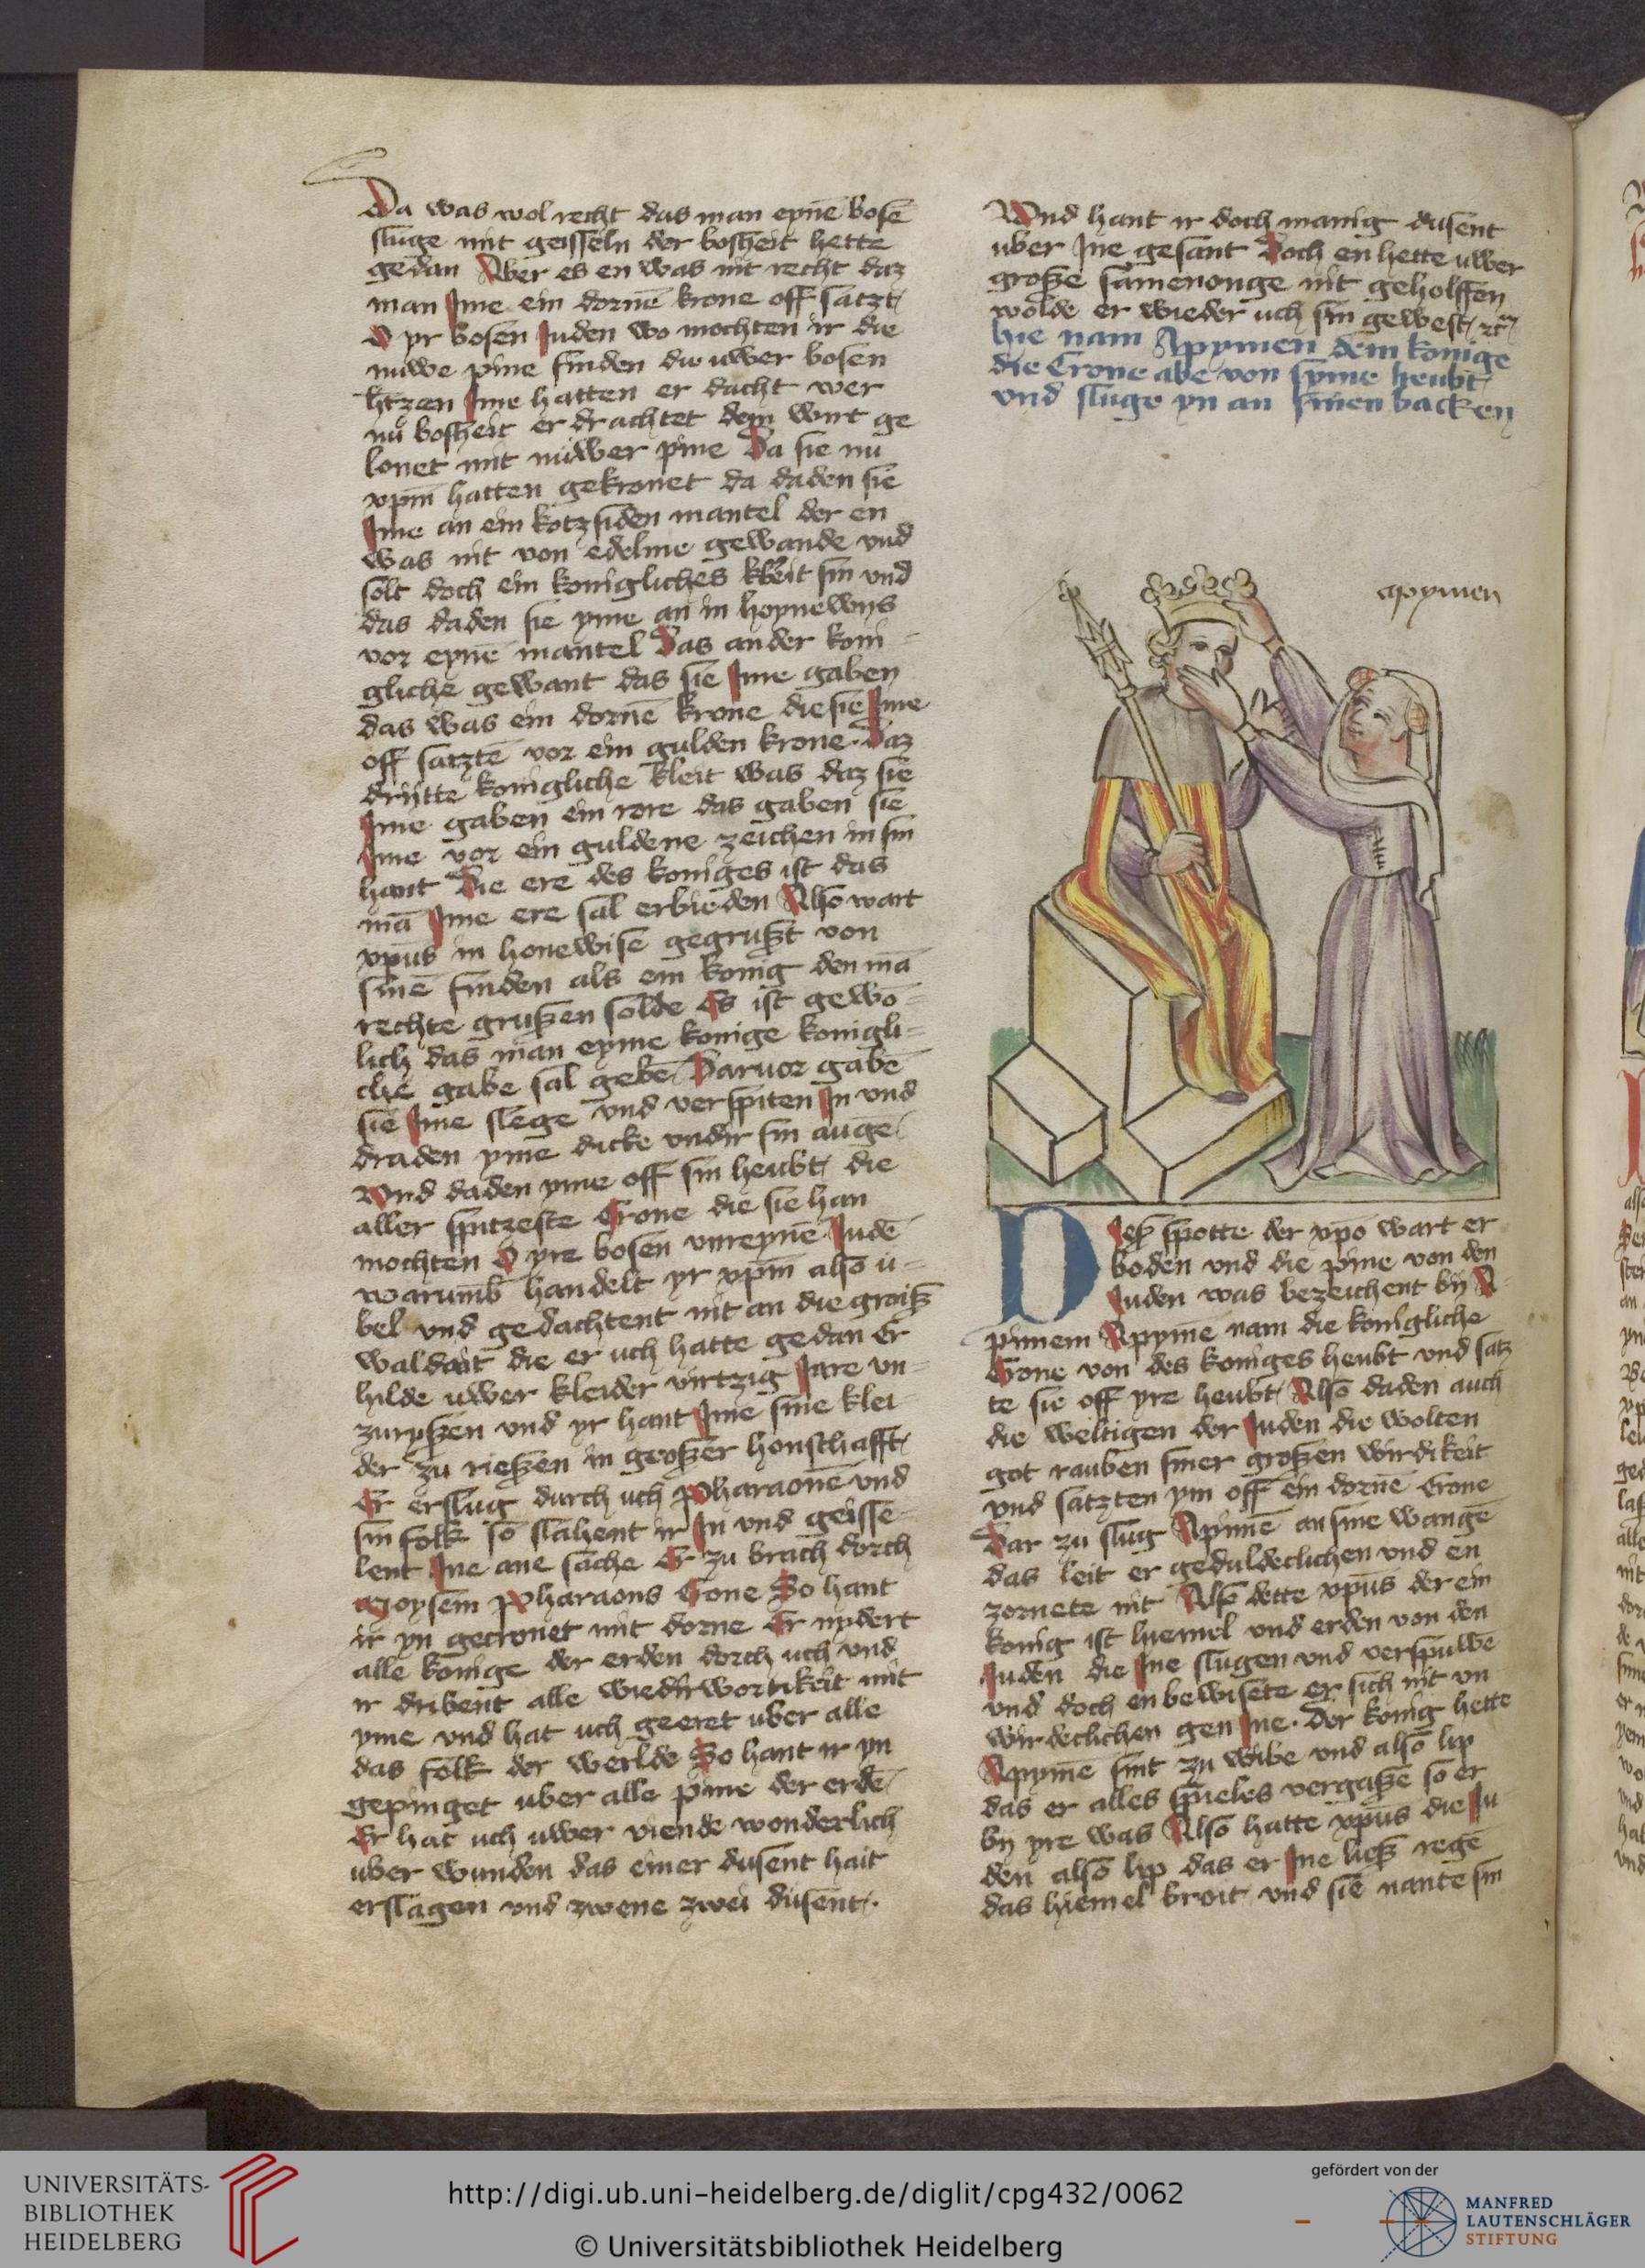 Da was wol recht das man eyne bose
sluge mit geisseln der bosheit hette
gedan Aber es en was nit recht daz
man Ime ein dorne krone off satzt
O yr bosen Juden wo mochten ir die
nuwe pine finden die uwer bosen
Ime hatten er dacht wer
nu bosheit er drachtet dem wirt ge
lonet mit nuwer pine Da sie nu
xpm hatten gekronet da daden sie
Ime an ein kotzsiden mantel der en
was nit von edelme gewande vnd
solt doch ein konigliches kleit sin vnd
das daden sie yme an in hoynewys
vor eyne mantel Das ander koni-
gliche gewant das sie Ime gaben
das was ein dorne krone die sie Ime
off satzte vor ein gulden krone. Daz
drytte konigliche kleit was daz sie
Ime gaben ein rore das gaben sie
Ime vor ein guldene zeichen in sin
hant Die ere des koniges ist das
mā Ime ere sal erbieden Also wart
xpus in honewise gegrußt von
sinē finden als ein konig den mā
rechte grußen solde Es ist gewo-
lich das man eyme konige konigli-
che gabe sal gebē Daruor gabē
sie Ime slege vnd verspiten In vnd
draden yme dicke vndir sin auge
Vnd daden yme off sin heubt die
aller spitzeste Crone die sie han
mochten O yre bosen vnreynē Judē
warumb handelt yr xpm also u-
bel vnd gedachtent nit an die groiß
waldait die er uch hatte gedan Er
hilde uwer kleider virtzig Jare vn-
zuryßen vnd yr hant Ime sine klei
der zu rießen in großer honschafft
Er erslug durch uch Pharaonē vnd
sin folk so slahent ir In vnd geisse-
lent Ine ane sache Er zu brach dorch
Moysem Pharaons Crone So hant
ir yn gecronet mit dorne Er nydert
alle konige der erden dorch uch vnd
ir dribent alle wiedirwortikeit mit
yme vnd hat uch geeret uber alle
das folk der werlde So hant ir yn
gepinget uber alle pine der erdē
Er hat uch uwer viende wonderlich
uber wunden das einer dusent hait
erslagen vnd zwene zwei dusent.
Vnd hant ir doch manig dusent
uber Ine gesant Doch en hette uwer
große samenonge nit geholffen
wolde er wieder uch sin gewest
hie nam Apymen dem konige
die Crone abe von syme heubt
vnd sluge yn an sinen backen
apymen
Dieß spotte der xpo wart er
boden vnd die pine von den
Juden was bezeichent by A
pimem Apyme nam die konigliche
Crone von des koniges heubt vnd satz
te sie off yre heubt Also daden auch
die weltigen der Juden die wolten
got rauben siner großen wirdikeit
vnd satzten ym off ein dornē Crone
Dar zu slug Apimē an sine wangē
das leit er geduldeclichen vnd en
zornete nit Also dette xpus der ein
konig ist hiemel vnd erden von den
Juden die Ine slugen vnd verspuwē
vnd doch en bewisete er sich nit vn
wirdeclichen gen Ine. Der konig hette
Apymē sint zu wibe vnd also lip
das er alles spieles vergaße so er
by yre was Also hatte xpus die Ju
den also lip das er Ine ließ regē
das hiemel broit vnd sie nante sin
UNIVERSITÄTS-
BIBLIOTHEK
HEIDELBERG
http://digi.ub.uni-heidelberg.de/diglit/cpg432/0062
© Universitätsbibliothek Heidelberg
gefördert von der
MANFRED
LAUTENSCHLÄGER
STIFTUNG